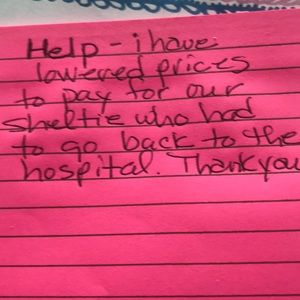 Help - i have
lowered prices
to pay for our
sheltie who had
to go back to the
hospital. Thank you